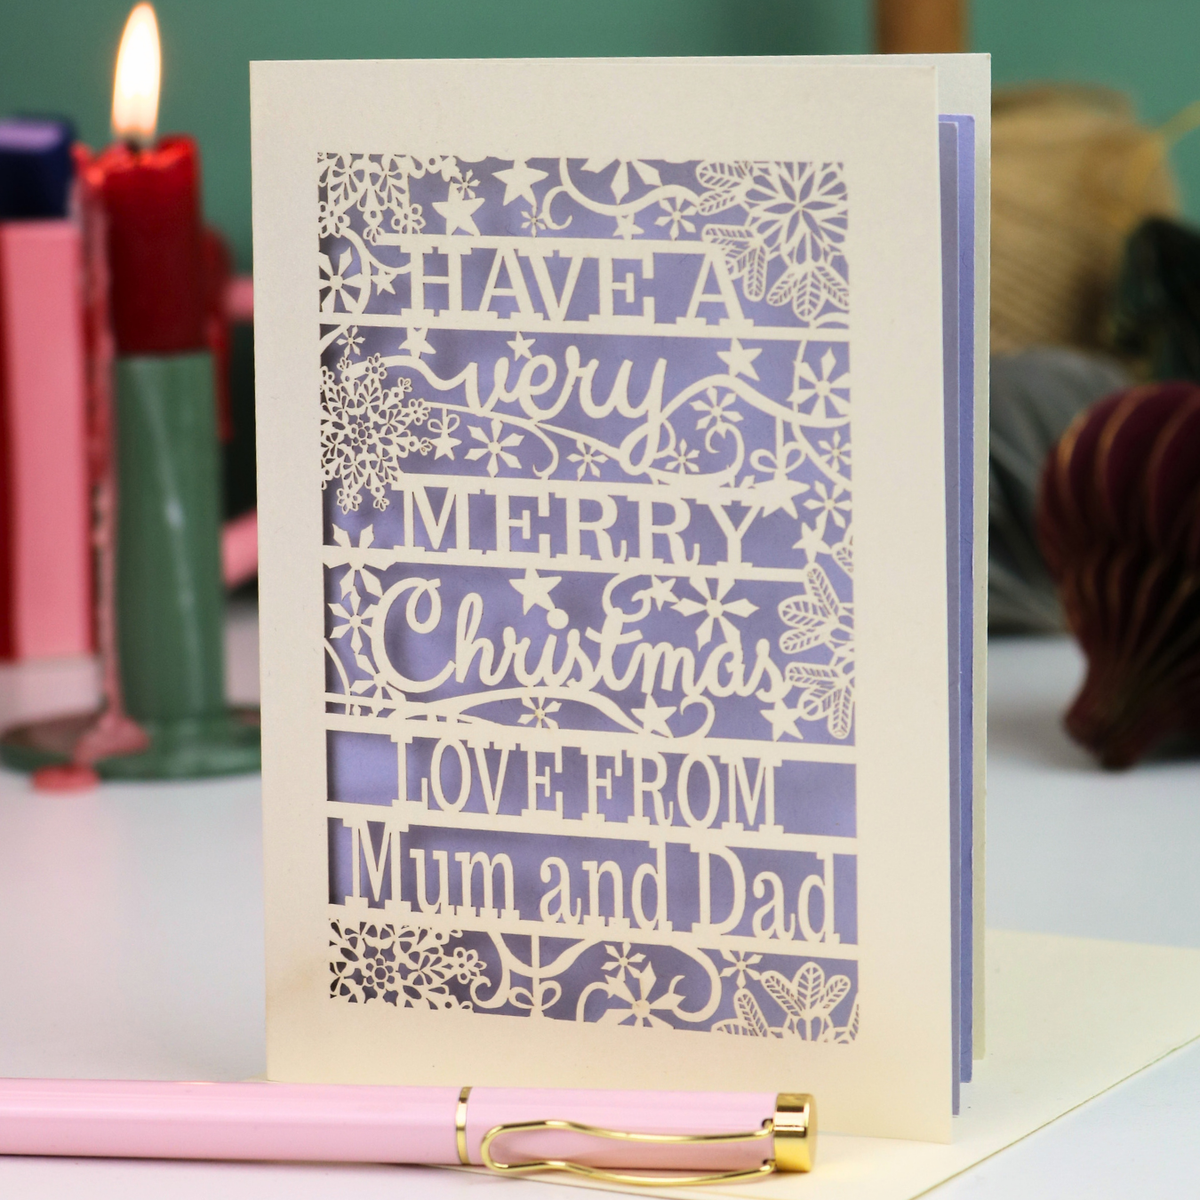 HAVE A
very
MERRY
Christmas
LOVE FROM
Mum and Dad